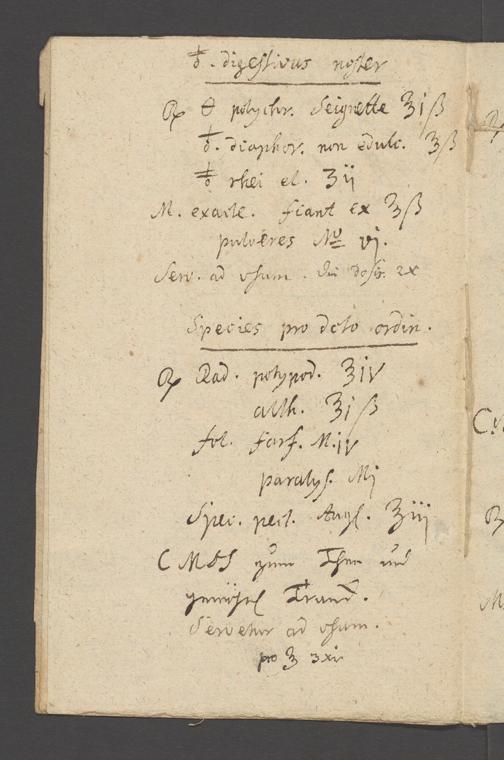 🜿. digestivus noster
℞ θ polychr. Seignette ʒiß
🜿. diaphor. non edulc. ʒß
🜿 rhei el. ʒij
M. exacte. fiant ex ʒß
pulveres No vj.
Serv. ad usum.
Species pro dcto ordin.
℞ Rad. polypod. ʒiv
alth. ʒiß
fol. farf. M.iv
paralys. Mj
Spec. pect. Aug. ʒiij
C M D S zum Thee und
Tranck.
Servetur ad usum.
pro ʒ